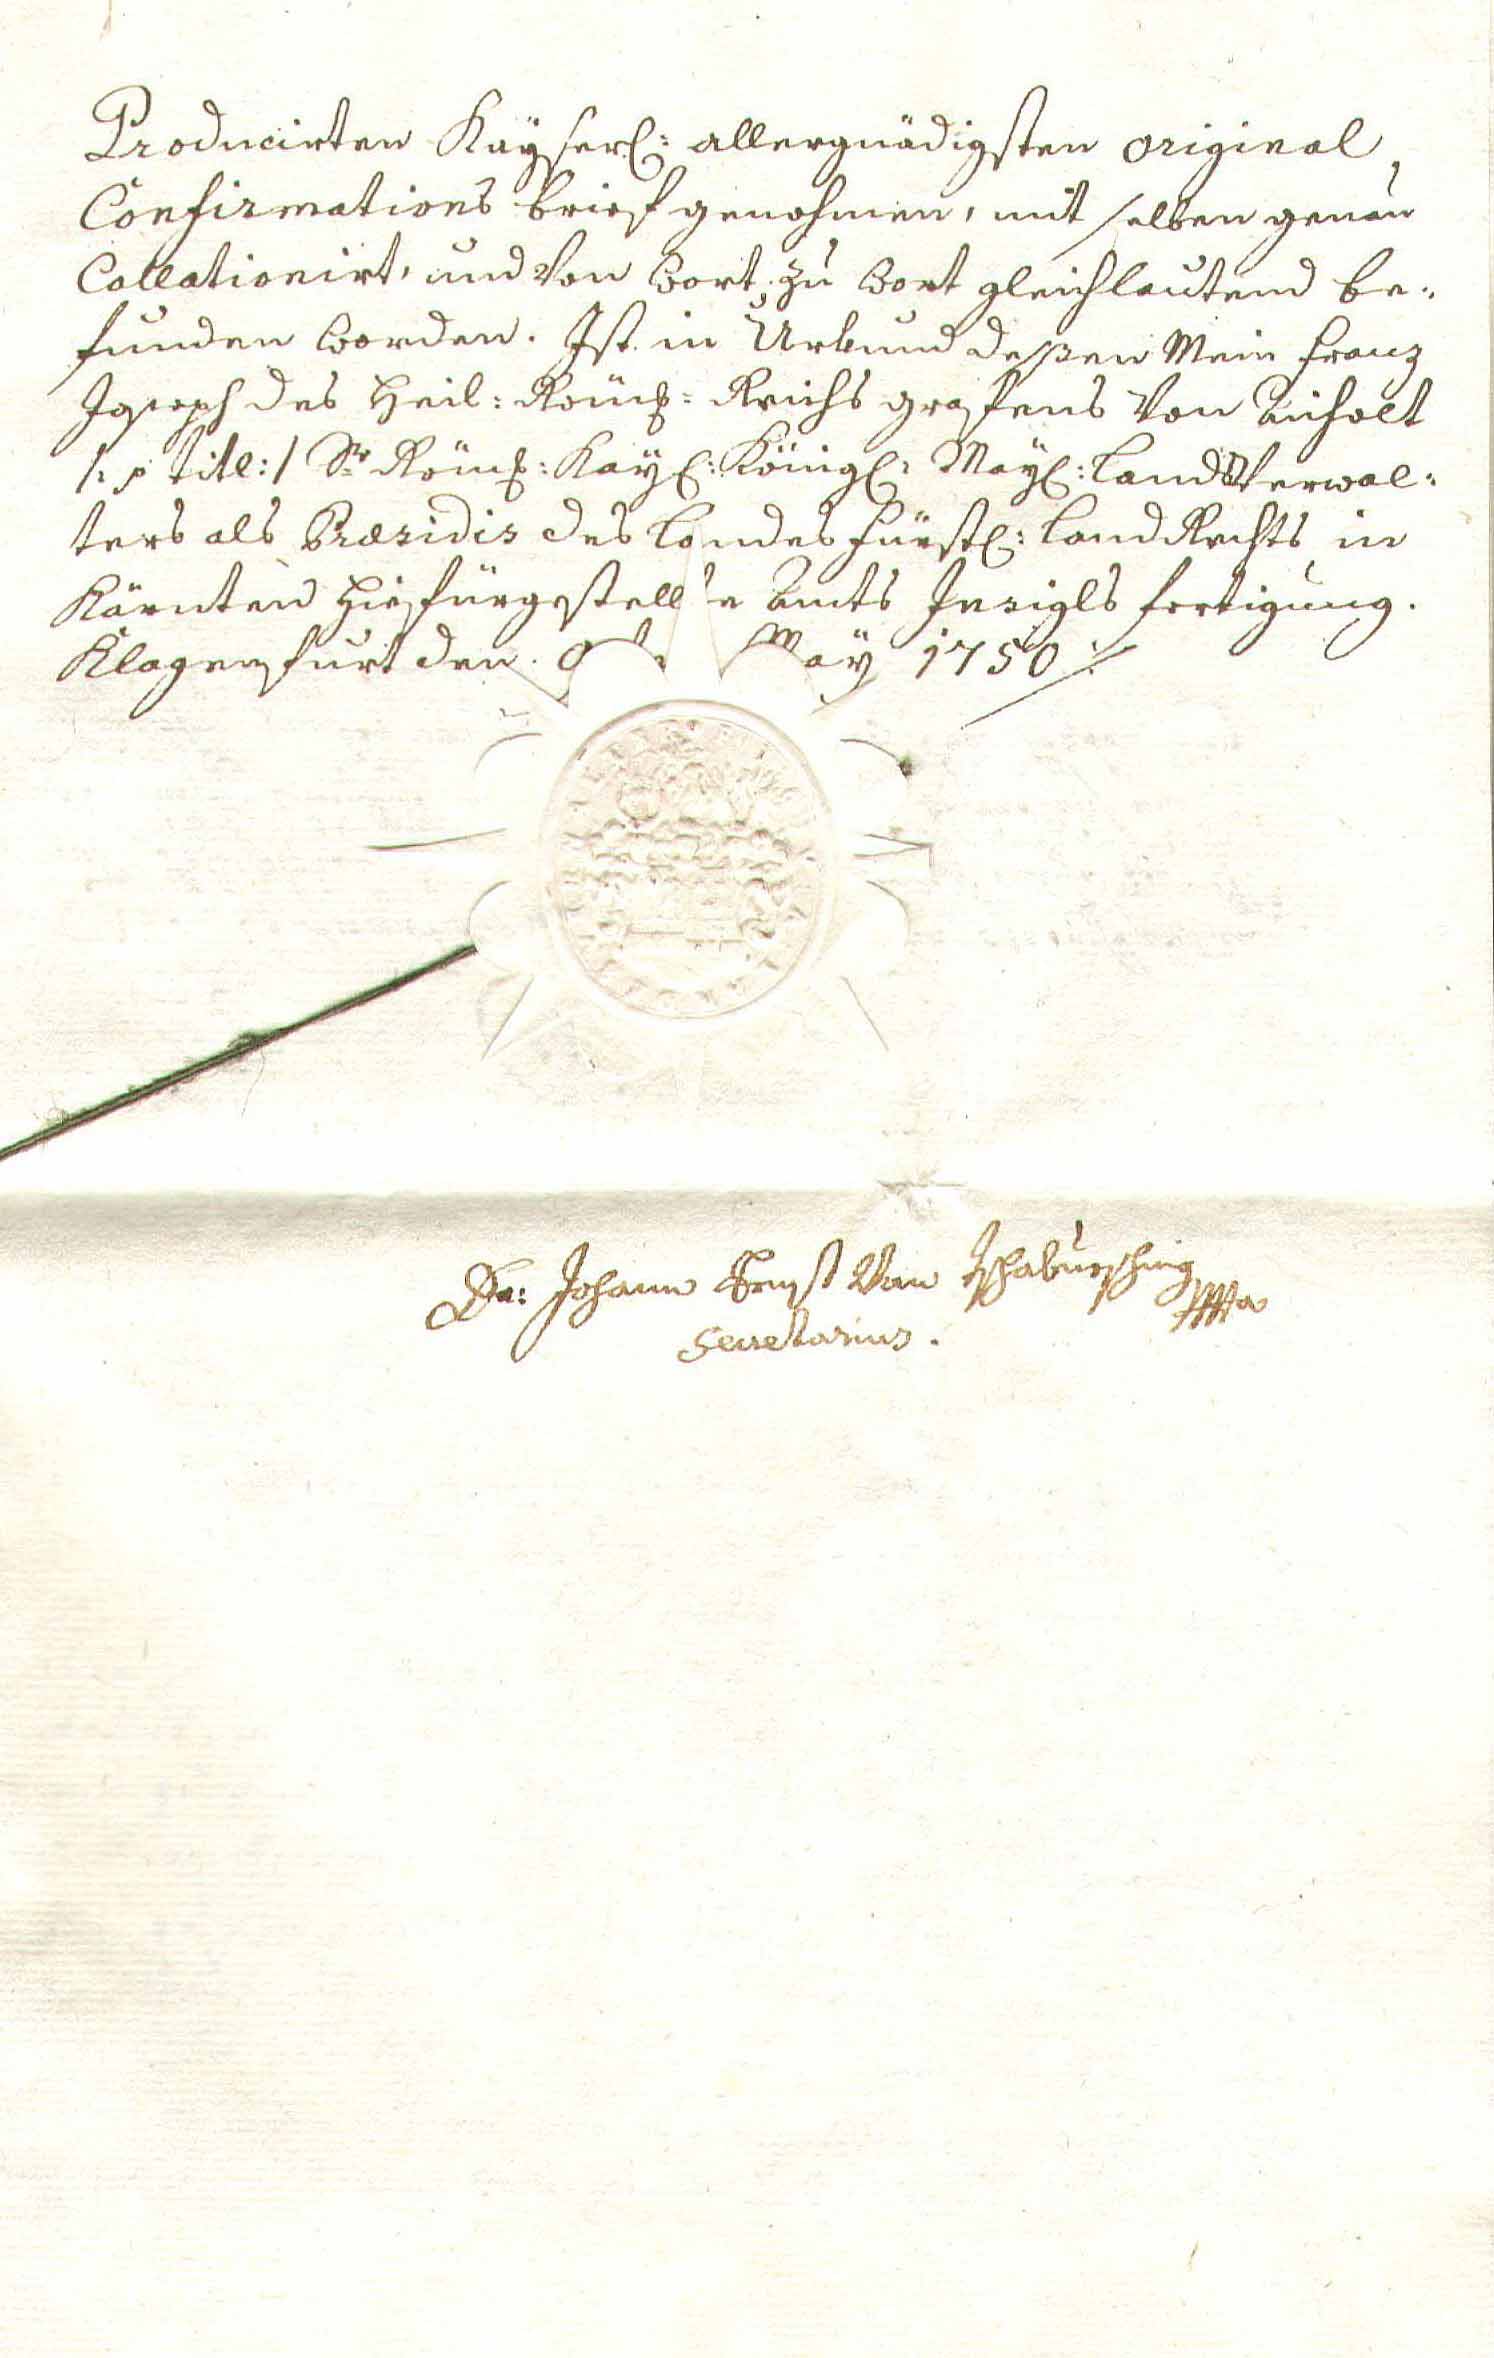 Producirten Kayserl: allergnädigsten original
Confirmations brief genohmen, mit selben genau
Collationirt, und Von Wort zu Wort gleichlautend be-
funden worden. Ist in Urkund deßen Mein Franz
Joseph des Heil: Röm: Reichs grafens Von
/: p: titl: / Sr Röm: Kay: Königl: May: Lands Verwal-
ters als Præsidis des Landes Fürstl: Land Rechts in
Kärnten hiefürgestellte Amts Insigls fertigung.
Klagenfurt den May 1750
Johann Ernst Von
Secretarius.